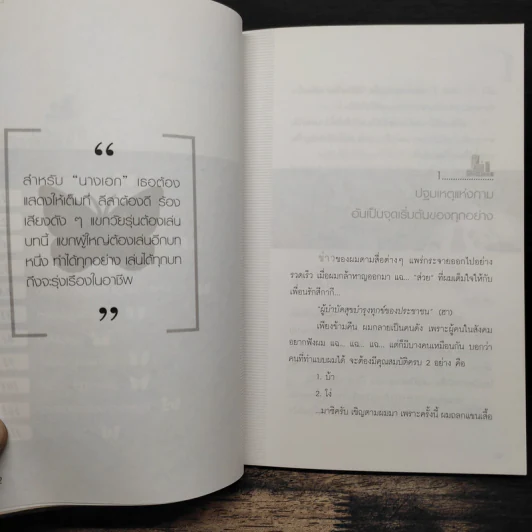 “
สำหรับ “นางเอก” เธอต้อง
แสดงให้เต็มที่ ลีลาต้องดี ร้อง
เสียงดัง ๆ แขกวัยรุ่นต้องเล่น
บทนี้ แขกผู้ใหญ่ต้องเล่นอีกบท
หนึ่ง ทำได้ทุกอย่าง เล่นได้ทุกบท
ถึงจะรุ่งเรืองในอาชีพ
”
2
1
ปฐมเหตุแห่งกาม
อันเป็นจุดเริ่มต้นของทุกอย่าง
ข่าวของผมตามสื่อต่างๆ แพร่กระจายออกไปอย่าง
รวดเร็ว เมื่อผมกล้าหาญออกมา แฉ... “ส่วย” ที่ผมเต็มใจให้กับ
เพื่อนรักสีกากี...
“ผู้บำบัดสุขบำรุงทุกข์ของประชาชน” (ฮา)
เพียงข้ามคืน ผมกลายเป็นคนดัง เพราะผู้คนในสังคม
อยากฟังผม แฉ... แฉ... แฉ... แต่ก็มีบางคนเหมือนกัน บอกว่า
คนที่ทำแบบผมได้ จะต้องมีคุณสมบัติครบ 2 อย่าง คือ
1. บ้า
2. โง่
...มาซิครับ เชิญตามผมมา เพราะครั้งนี้ ผมถลกแขนเสื้อ